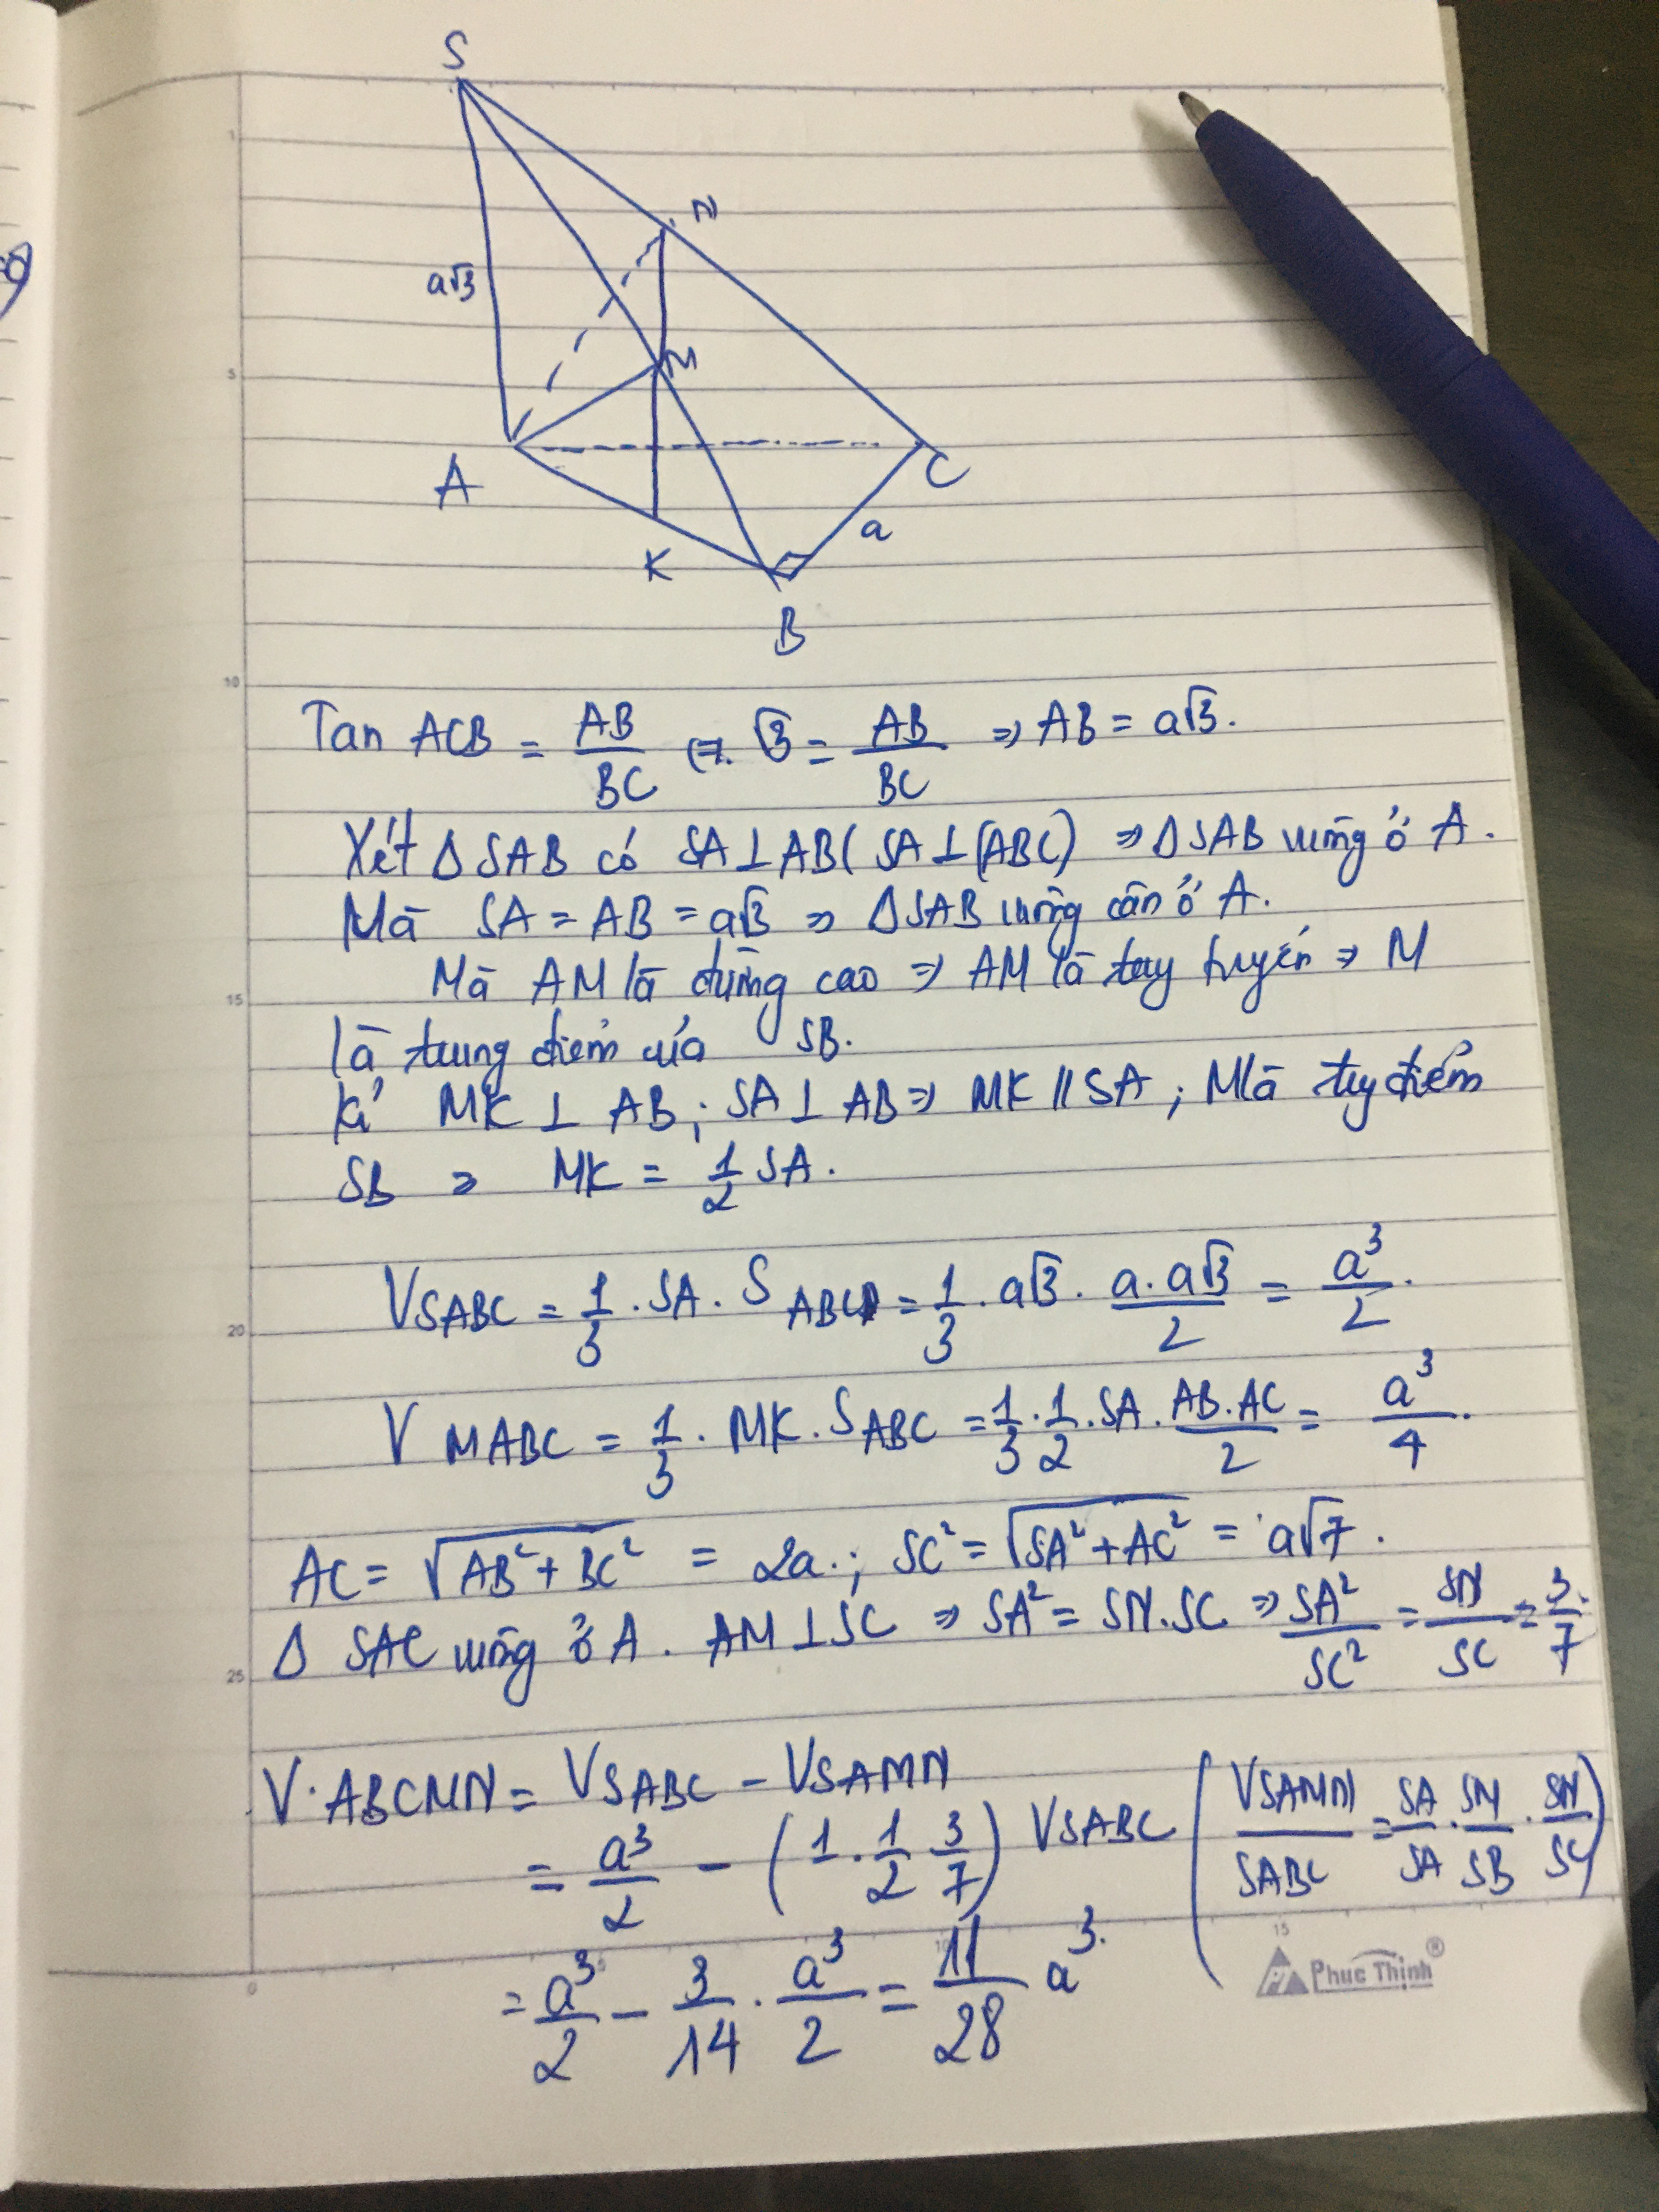 S
N
a√3
M
A
C
a
K
B
1
5
10
15
20
25
Tan ACB = AB/BC (=). √3 = AB/BC => AB = a√3.
Xét Δ SAB có SA ⊥ AB ( SA ⊥ (ABC) => Δ SAB vuông ở A.
Mà SA = AB = a√3 => Δ SAB vuông cân ở A.
Mà AM là đường cao => AM là tuyến => M
là trung điểm của SB.
Kẻ MK ⊥ AB; SA ⊥ AB => MK // SA ; M là điểm
SB => MK = 1/2 SA.
VSABC = 1/3 . SA . S ABC = 1/3 . a√3 . a.a√3/2 = a³/2.
V MABC = 1/3 . MK . S ABC = 1/3 . 1/2 . SA . AB.AC/2 = a³/4.
AC = √AB²+BC² = 2a.; SC² = √SA²+AC² = a√7.
Δ SAC vuông ở A. AM ⊥ SC => SA² = SN.SC => SA²/SC² = SN/SC = 3/7.
V.ABCMN = VSABC - VSAMN
= a³/2 - (1 . 1/2 3/7) VSABC ( VSAMN/SABC = SA/SA . SM/SB . SN/SC )
= a³/2 - 3/14 . a³/2 = 11/28 a³.
0
10
15
Phuc Thinh®